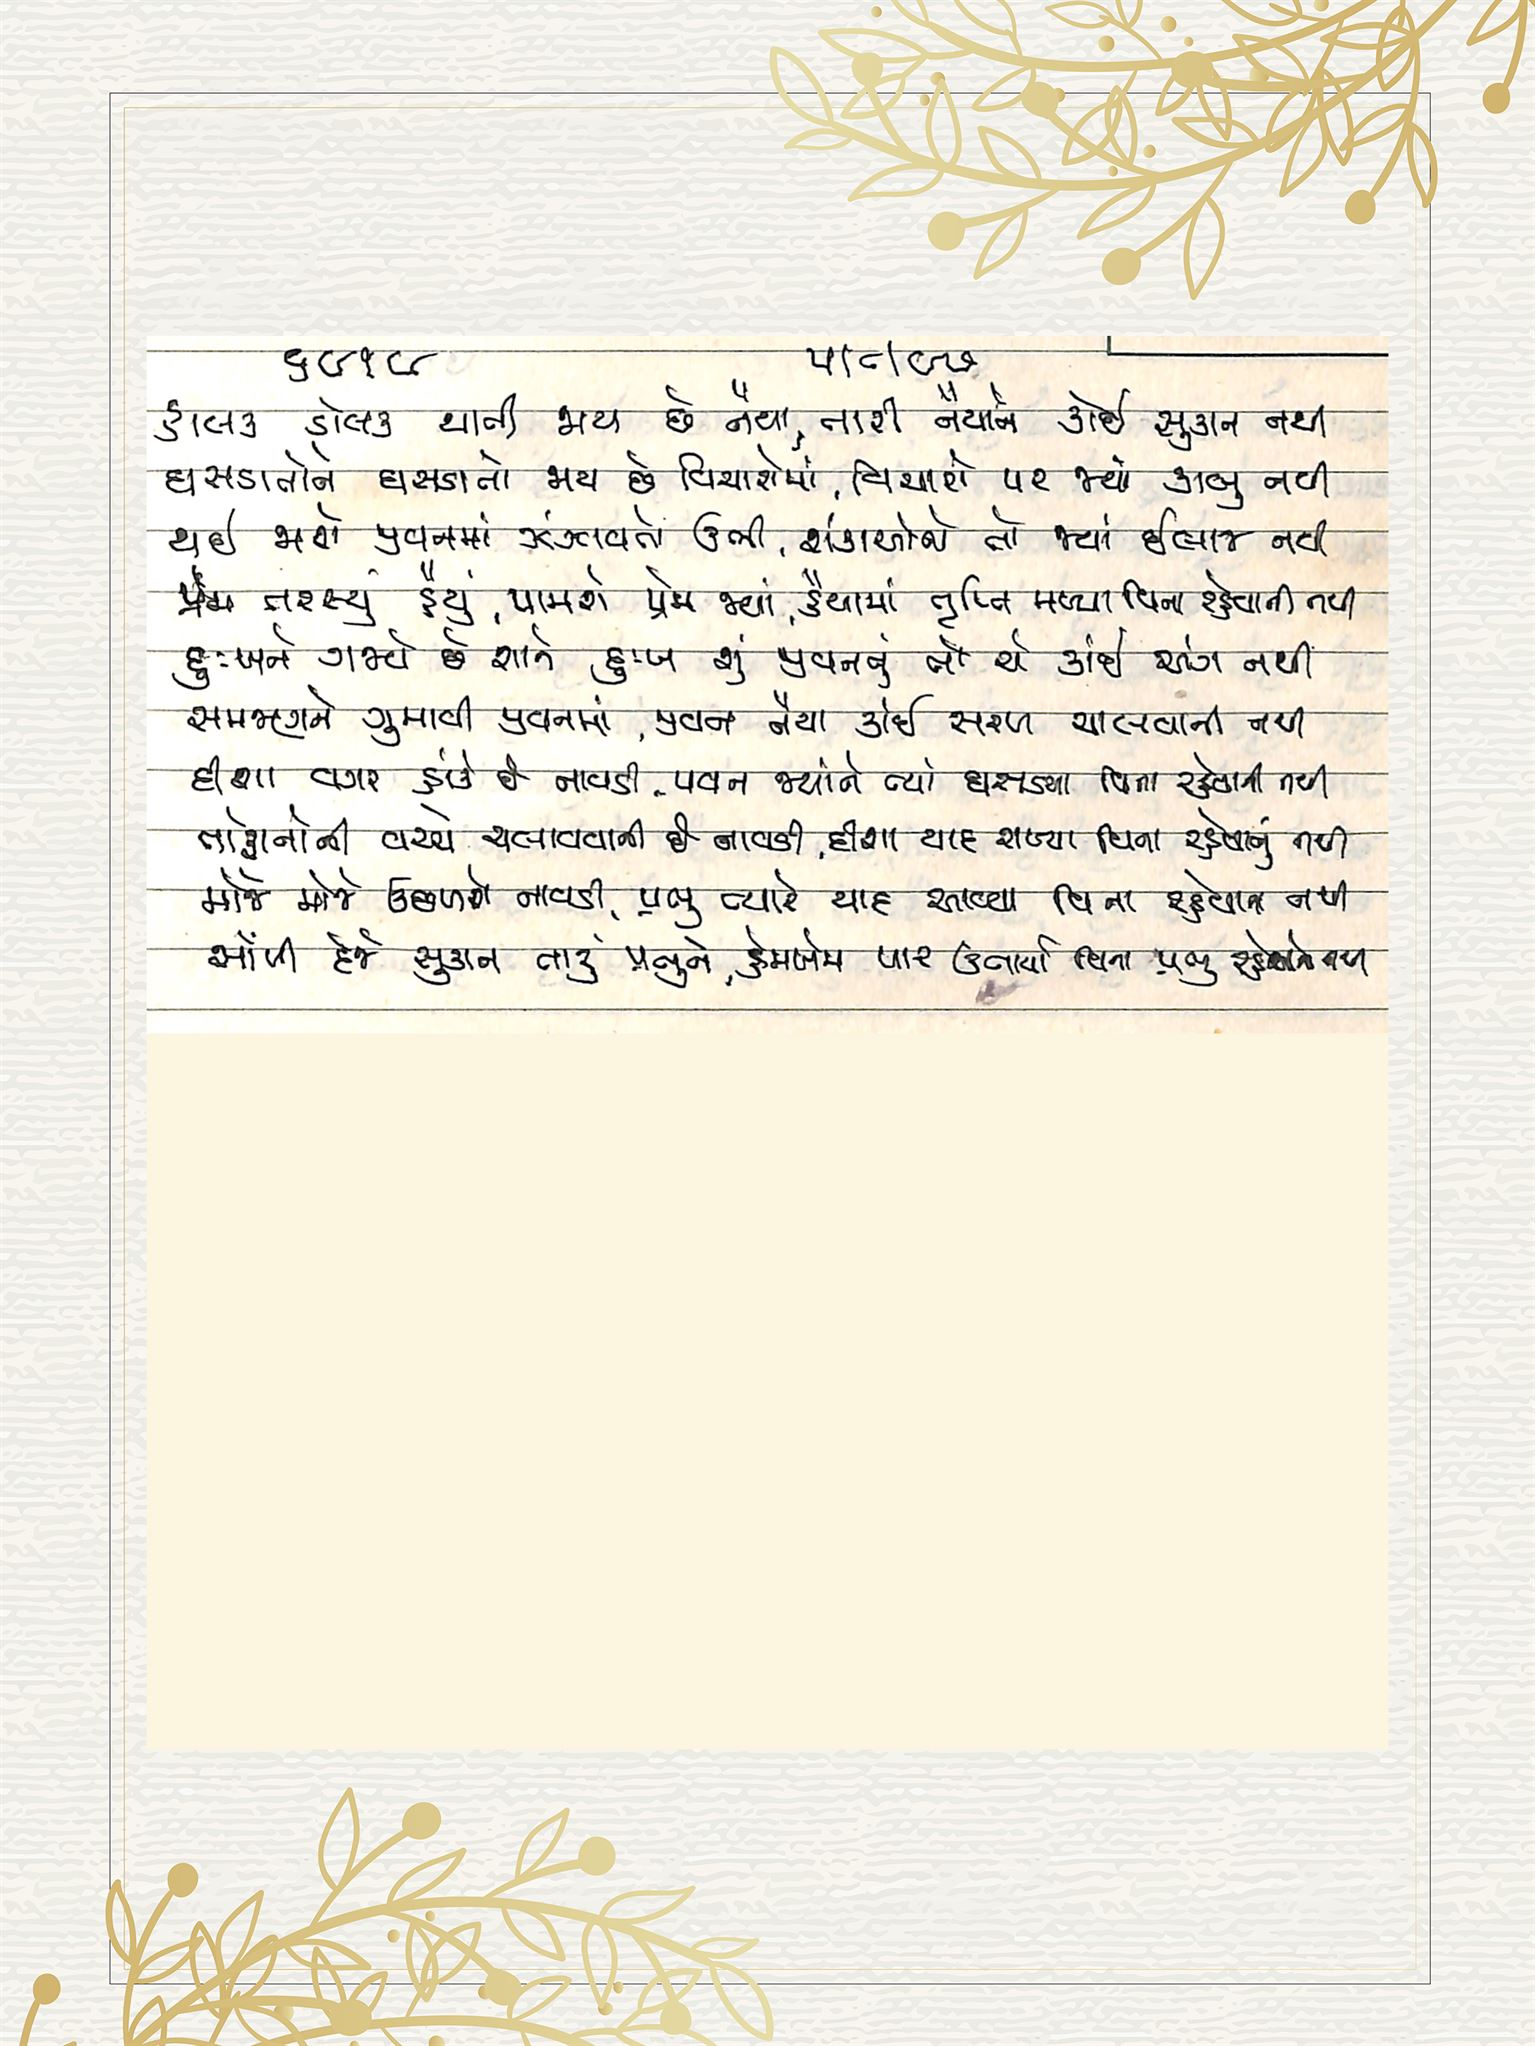 ૬૮૧૮ ૫/૮/૯૭
હાલક ડોલક થાતી જાય છે નૈયા, તારી નૈયાને કોઈ સુકાન નથી
ઘસડાતોને ઘસડાતો જાય છે વિચારોમાં, વિચારો પર જ્યાં કાબુ નથી
થઈ જાશે જીવનમાં ઝંઝાવાતો ઉભી, શંકાઓનો તો જ્યાં ઈલાજ નથી
પ્રેમ તરસ્યું હૈયું, પામશે પ્રેમ જ્યાં, હૈયામાં તૃપ્તિ મળ્યા વિના રહેવાની નથી
દુઃખને ગમ્યો છે શાને દુઃખ શું જીવનનું તો એ કાંઈ અંગ નથી
સમજણને ગુમાવી જીવનમાં, જીવન નૈયા કોઈ સરળ ચાલવાની નથી
દીશા વગર હાંકે છે નાવડી, પવન જ્યાંને ત્યાં ઘસડ્યા વિના રહેવાની નથી
તોફાનોની વચ્ચે ચલાવવાની છે નાવડી, દીશા યાદ રાખ્યા વિના રહેવાનું નથી
મોજે મોજે ઉછળશે નાવડી, પ્રભુ ત્યારે યાદ આવ્યા વિના રહેવાના નથી
સોંપી દેજે સુકાન તારું પ્રભુને, હેમખેમ પાર ઉતાર્યા વિના પ્રભુ નથી